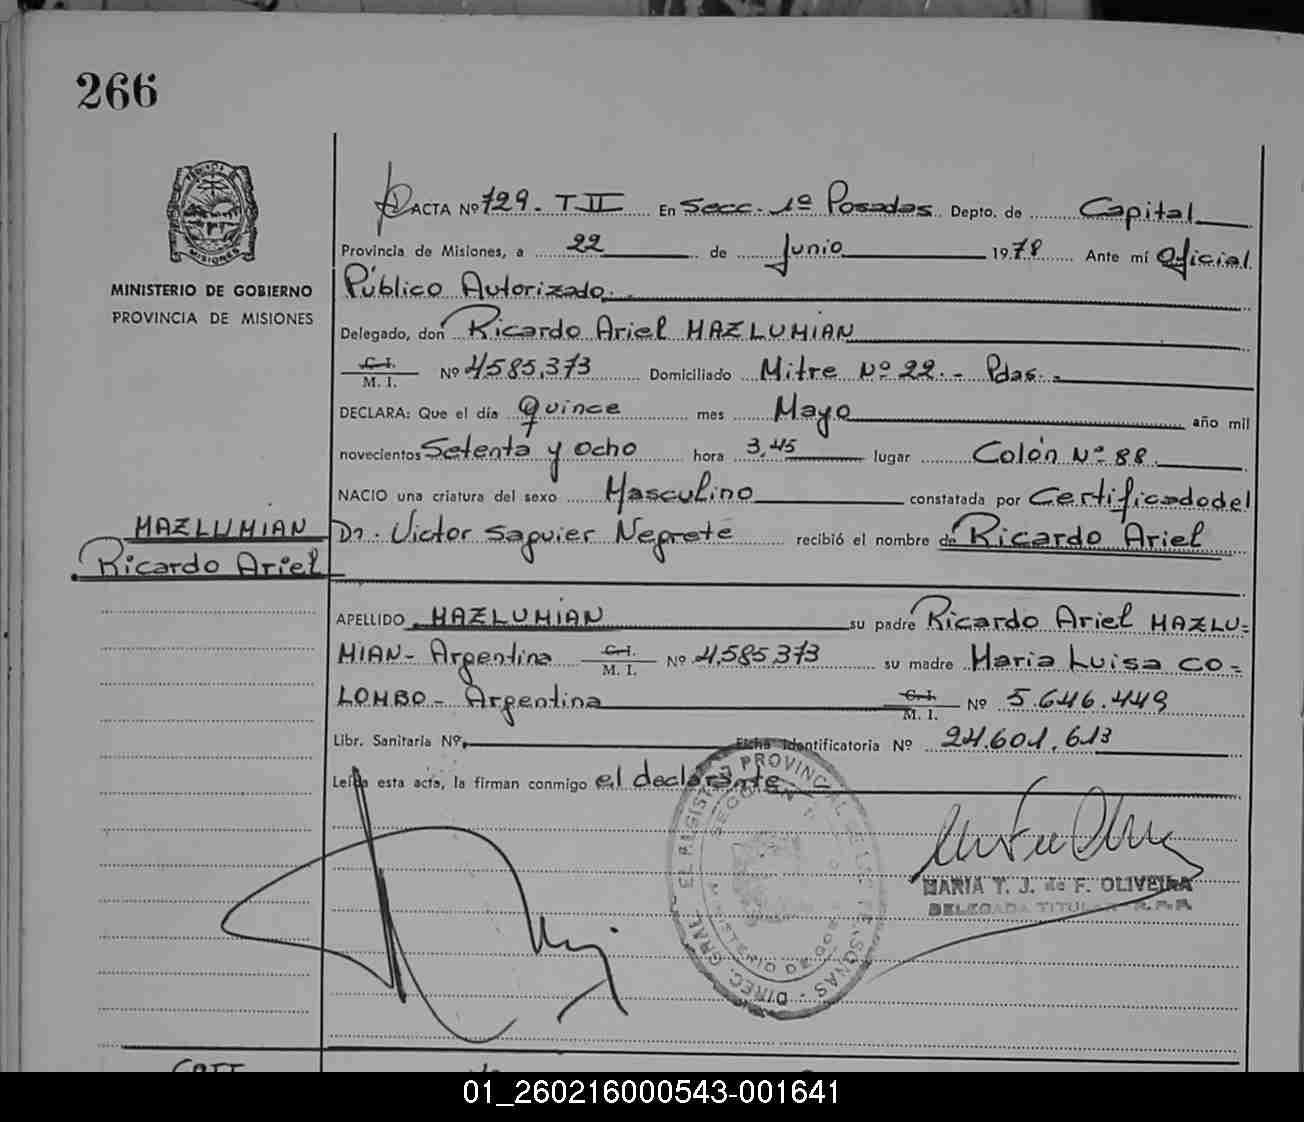 266
MINISTERIO DE GOBIERNO
PROVINCIA DE MISIONES
ACTA Nº 729. T II En Secc. 1º Posadas Depto. de Capital
Provincia de Misiones, a 22 de Junio 1978 Ante mí Oficial
Público Autorizado.
Delegado, don Ricardo Ariel MAZLUMIAN
C.I. M. I. Nº 4585.373 Domiciliado Mitre Nº 22.- Pdas.-
DECLARA: Que el día Quince mes Mayo año mil
novecientos Setenta y ocho hora 3,45 lugar Colón Nº 88.
NACIO una criatura del sexo Masculino constatada por Certificado del
Dr. Victor Saguier Negrete recibió el nombre de Ricardo Ariel
MAZLUMIAN
Ricardo Ariel
APELLIDO MAZLUMIAN su padre Ricardo Ariel MAZLU=
MIAN- Argentina C.I. M. I. Nº 4.585.373 su madre Maria Luisa CO=
LOMBO- Argentina C.I. M. I. Nº 5.646.449
Libr. Sanitaria Nº Ficha Identificatoria Nº 24.601.613
Leída esta acta, la firman conmigo el declarante
DIREC. GRAL. EL REGISTRO PROVINCIAL DE LAS PERSONAS
MINISTERIO DE GOBIERNO
MARIA T. J. de F. OLIVEIRA
DELEGADA TITULAR - R.P.P.
01_260216000543-001641